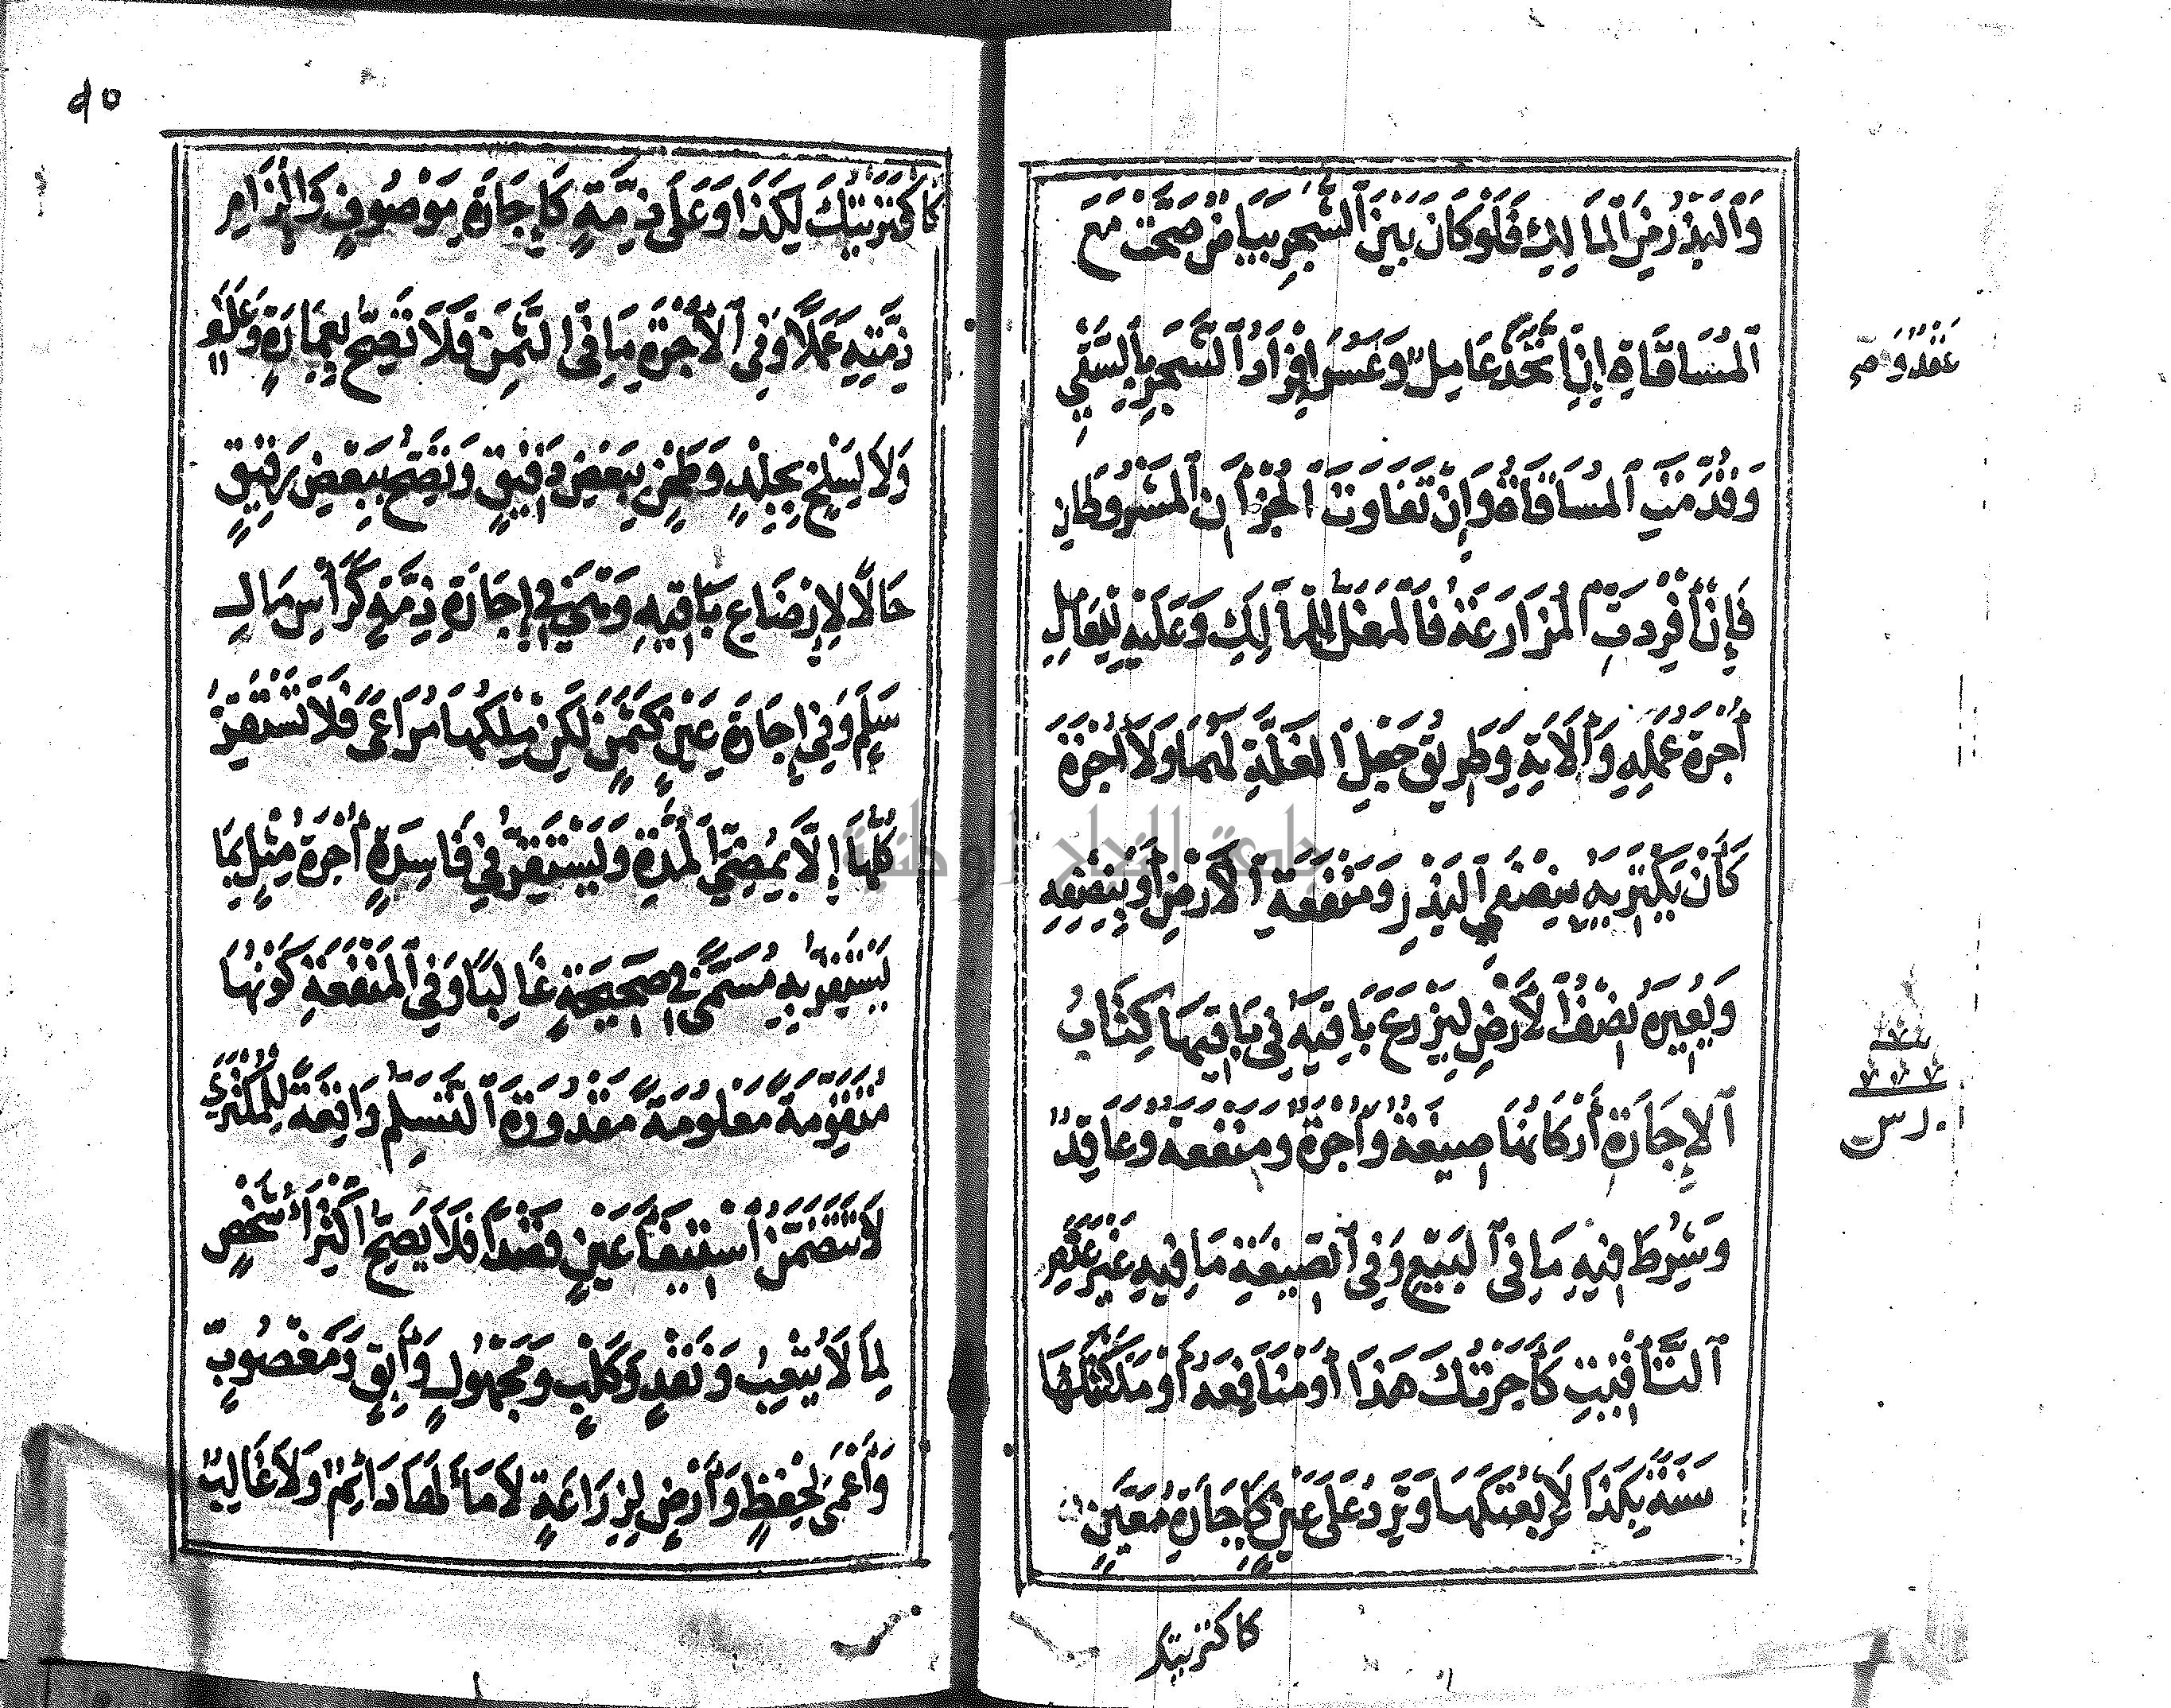 وَٱلْبَذْرُ مِنَ ٱلْمَالِكِ فَلَوْ كَانَ بَيْنَ ٱلشَّجَرِ بَيَاضٌ صَحَّتْ مَعَ
ٱلْمُسَاقَاةِ إِنِ ٱتَّحَدَ عَامِلٌ وَعَسُرَ إِفْرَادُ ٱلشَّجَرِ بِٱلسَّقْيِ
وَقُدِّمَتِ ٱلْمُسَاقَاةُ وَإِنْ تَفَاوَتَ ٱلْجُزْآنِ ٱلْمَشْرُوطَانِ
فَإِنْ أُفْرِدَتِ ٱلْمُزَارَعَةُ فَٱلْمَغَلُّ لِلْمَالِكِ وَعَلَيْهِ لِلْعَامِلِ
أُجْرَةُ عَمَلِهِ وَآلَاتِهِ وَطَرِيقُ جَعْلِ ٱلْغَلَّةِ لَهُمَا وَلَا أُجْرَةَ
كَأَنْ يَكْتَرِيَهُ بِنِصْفَيِ ٱلْبَذْرِ وَمَنْفَعَةِ ٱلْأَرْضِ أَوْ بِنِصْفِهِ
وَيُعِيرَهُ نِصْفَ ٱلْأَرْضِ لِيَزْرَعَ بَاقِيَهُ فِي بَاقِيهَا كِتَابُ
ٱلْإِجَارَةِ أَرْكَانُهَا صِيغَةٌ وَأُجْرَةٌ وَمَنْفَعَةٌ وَعَاقِدٌ
وَشُرِطَ فِيهِ مَا فِي ٱلْبَيْعِ وَفِي ٱلصِّيغَةِ مَا فِيهِ غَيْرَ عَدَمِ
ٱلتَّأْقِيتِ كَأَجَرْتُكَ هَذَا أَوْ مَنَافِعَهُ أَوْ مَلَّكْتُكَهَا
سَنَةً بِكَذَا لَا بِعْتُكَهَا وَتَرِدُ عَلَى عَيْنٍ كَإِجَارَةِ مُعَيَّنٍ
كاكتريتك
عقد وص
درس
٩٥
كَاكْتَرَيْتُكَ لِكَذَا وَعَلَى ذِمَّةٍ كَإِجَارَةِ مَوْصُوفٍ وَإِلْزَامِ
ذِمَّتِهِ عَمَلًا وَفِي ٱلْأُجْرَةِ مَا فِي ٱلثَّمَنِ فَلَا تَصِحُّ بِعِمَارَةٍ وَعَلَفٍ
وَلَا لِسَلْخٍ بِجِلْدٍ وَطَحْنٍ بِبَعْضِ دَقِيقٍ وَتَصِحُّ بِبَعْضِ رَقِيقٍ
حَالًا لِإِرْضَاعِ بَاقِيهِ وَهِيَ فِي إِجَارَةِ ذِمَّةٍ كَرَأْسِ مَالِ
سَلَمٍ وَفِي إِجَارَةِ عَيْنٍ كَثَمَنٍ لَكِنْ مِلْكُهَا مُرَاعًى فَلَا تَسْتَقِرُّ
كُلُّهَا إِلَّا بِمُضِيِّ ٱلْمُدَّةِ وَيَسْتَقِرُّ فِي فَاسِدَةٍ أُجْرَةُ مِثْلٍ بِمَا
يَسْتَقِرُّ بِهِ مُسَمًّى فِي صَحِيحَةٍ غَالِبًا وَفِي ٱلْمَنْفَعَةِ كَوْنُهَا
مُتَقَوِّمَةً مَعْلُومَةً مَقْدُورَةَ ٱلتَّسَلُّمِ وَاقِعَةً لِلْمُكْتَرِي
لَا تَتَضَمَّنُ ٱسْتِيفَاءَ عَيْنٍ قَصْدًا فَلَا يَصِحُّ ٱكْتِرَاءُ شَخْصٍ
لِمَا لَا يُتْعِبُ وَنَقْدٍ وَكَلْبٍ وَمَجْهُولٍ وَآبِقٍ وَمَغْصُوبٍ
وَأَعْمَى لِحِفْظٍ وَأَرْضٍ لِزِرَاعَةٍ لَا مَاءَ لَهَا دَائِمٌ وَلَا غَالِبٌ
جامعة النجاح الوطنية